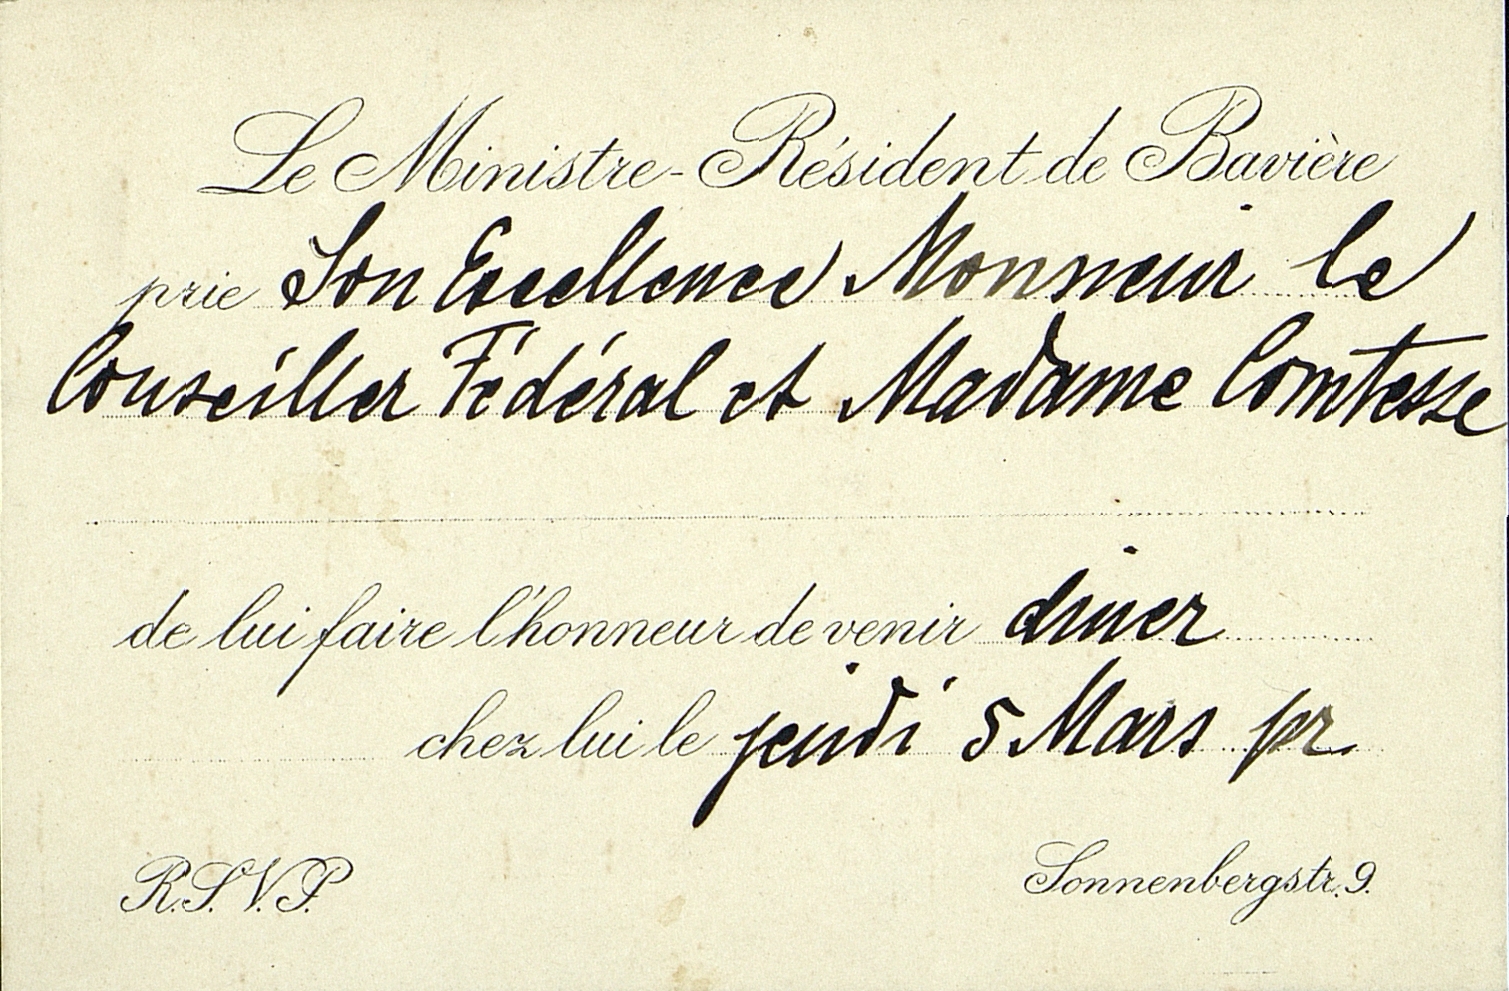 Le Ministre-Résident de Bavière
prie Son Excellence Monsieur le
Conseiller Fédéral et Madame Comtesse
de lui faire l'honneur de venir diner
chez lui le jeudi 5 Mars pr.
R.S.V.P. Sonnenbergstr. 9.